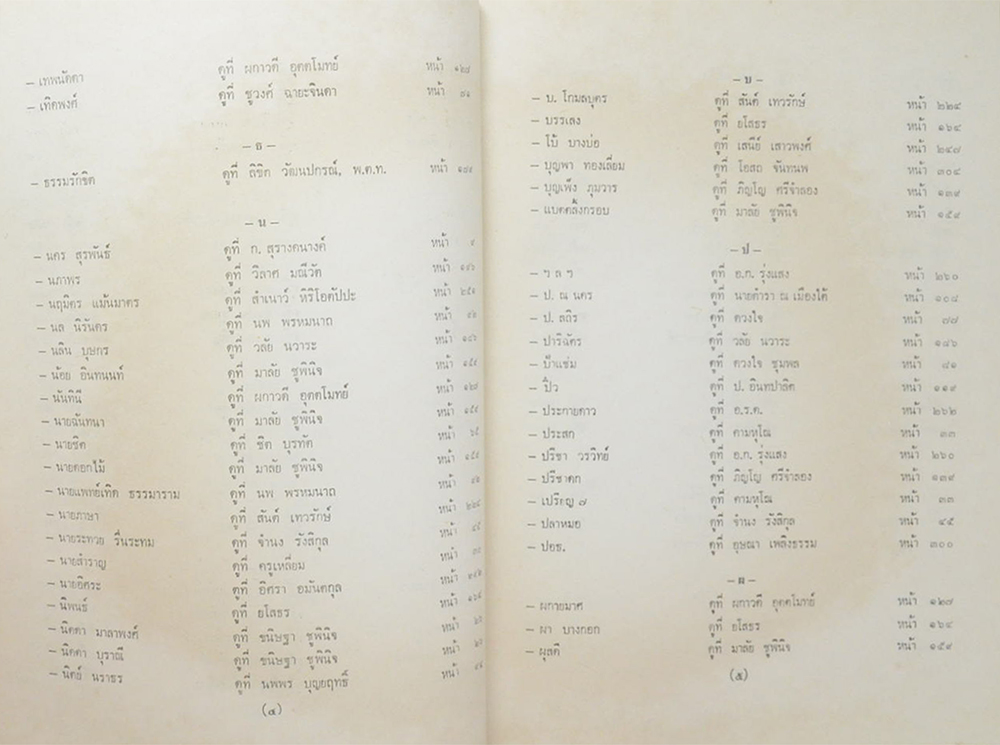 - เทพนัดดา ดูที่ ผกาวดี อุตตโมทย์ หน้า ๑๒๗
- เทิดพงศ์ ดูที่ ชูวงศ์ ฉายะจินดา หน้า
- ธ -
- ธรรมรักขิต ดูที่ ลิขิต วัฒนปกรณ์, พ.ต.ท. หน้า
- น -
- นคร สุรพันธ์ ดูที่ ก. สุรางคนางค์ หน้า
- นภาพร ดูที่ วิลาศ มณีวัต หน้า
- นฤมิตร แม้นมาตร ดูที่ สำเนาว์ หิริโอตัปปะ หน้า
- นล นิรันดร ดูที่ นพ พรหมนาถ หน้า
- นลิน บุษกร ดูที่ วลัย นวาระ หน้า ๑๔๖
- น้อย อินทนนท์ ดูที่ มาลัย ชูพินิจ หน้า ๑๕๔
- นันทินี ดูที่ ผกาวดี อุตตโมทย์ หน้า ๑๒๗
- นายฉันทนา ดูที่ มาลัย ชูพินิจ หน้า ๑๕๔
- นายชิต ดูที่ ชิต บุรทัต หน้า ๖๕
- นายดอกไม้ ดูที่ มาลัย ชูพินิจ หน้า ๑๕๔
- นายแพทย์เทิด ธรรมาราม ดูที่ นพ พรหมนาถ หน้า
- นายภาษา ดูที่ สันต์ เทวรักษ์ หน้า ๒๒๔
- นายระทวย รื่นระทม ดูที่ จำนง รังสิกุล หน้า ๔๕
- นายสำราญ ดูที่ ครูเหลี่ยม หน้า
- นายอิศระ ดูที่ อิศรา อมันตกุล หน้า
- นิพนธ์ ดูที่ ยโสธร หน้า ๑๖๔
- นิดดา มาลาพงศ์ ดูที่ ขนิษฐา ชูพินิจ หน้า
- นิดดา บุราณี ดูที่ ขนิษฐา ชูพินิจ หน้า
- นิตย์ นราธร ดูที่ นพพร บุญยฤทธิ์ หน้า
(๔)
- บ -
- บ. โกมลบุตร ดูที่ สันต์ เทวรักษ์ หน้า ๒๒๔
- บรรเลง ดูที่ ยโสธร หน้า ๑๖๔
- โบ้ บางบ่อ ดูที่ เสนีย์ เสาวพงศ์ หน้า ๒๔๗
- บุญพา ทองเลี่ยม ดูที่ โอสถ จันทนพ หน้า ๓๐๔
- บุญเพ็ง ภุมวาร ดูที่ ภิญโญ ศรีจำลอง หน้า ๑๓๙
- แบตตลิ่งกรอบ ดูที่ มาลัย ชูพินิจ หน้า ๑๕๔
- ป -
- ฯ ล ฯ ดูที่ อ.ก. รุ่งแสง หน้า ๒๖๐
- ป. ณ นคร ดูที่ นายตำรา ณ เมืองใต้ หน้า ๑๐๘
- ป. สถิร ดูที่ ดวงใจ หน้า ๗๗
- ปาริฉัตร ดูที่ วลัย นวาระ หน้า ๑๔๖
- ป้าแช่ม ดูที่ ดวงใจ ชุมพล หน้า ๘๑
- ปิ๋ว ดูที่ ป. อินทปาลิต หน้า ๑๑๙
- ประกายดาว ดูที่ อ.ร.ด. หน้า ๒๖๒
- ประสก ดูที่ คามหุโณ หน้า ๓๓
- ปรีชา วรวิทย์ ดูที่ อ.ก. รุ่งแสง หน้า ๒๖๐
- ปรีชาตก ดูที่ ภิญโญ ศรีจำลอง หน้า ๑๓๙
- เปรียญ ๗ ดูที่ คามหุโณ หน้า ๓๓
- ปลาหมอ ดูที่ จำนง รังสิกุล หน้า ๔๕
- ปอธ. ดูที่ อุษณา เพลิงธรรม หน้า ๓๐๐
- ผ -
- ผกายมาศ ดูที่ ผกาวดี อุตตโมทย์ หน้า ๑๒๗
- ผา บางกอก ดูที่ ยโสธร หน้า ๑๖๔
- ผุสดี ดูที่ มาลัย ชูพินิจ หน้า ๑๕๙
(๕)